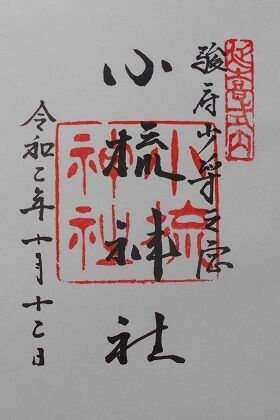 延喜式内
駿府少将之宮
小梳神社
小梳
神社
令和二年十月十二日